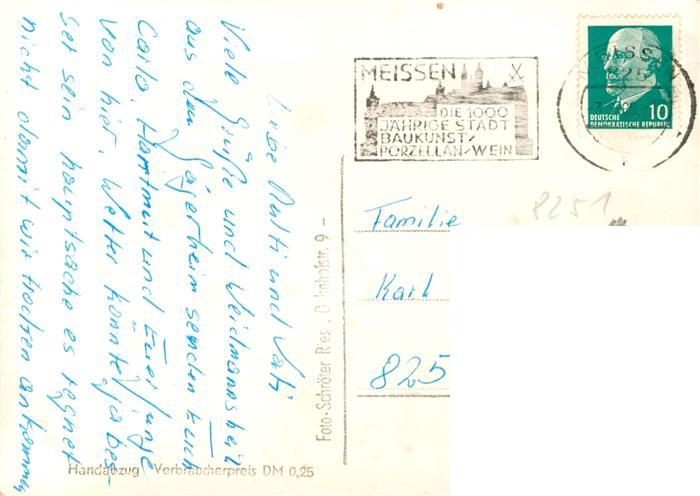 Liebe Mutti und Vati
Viele Grüße und Weidmannsheil
aus dem Jägerheim senden Euch
Carla, Hartmut und Euer Junge
von hier. Wetter könnte ja bes-
ser sein hauptsache es regnet
nicht damit wir trocken ankommen
Handabzug Verbraucherpreis DM 0,25
Foto-Schröter Riesa, Bahnhofstr. 9 -
MEISSEN
DIE 1000
JÄHRIGE STADT
BAUKUNST/
PORZELLAN/WEIN
825
10
DEUTSCHE
DEMOKRATISCHE REPUBLIK
8251
Familie
Karl
825